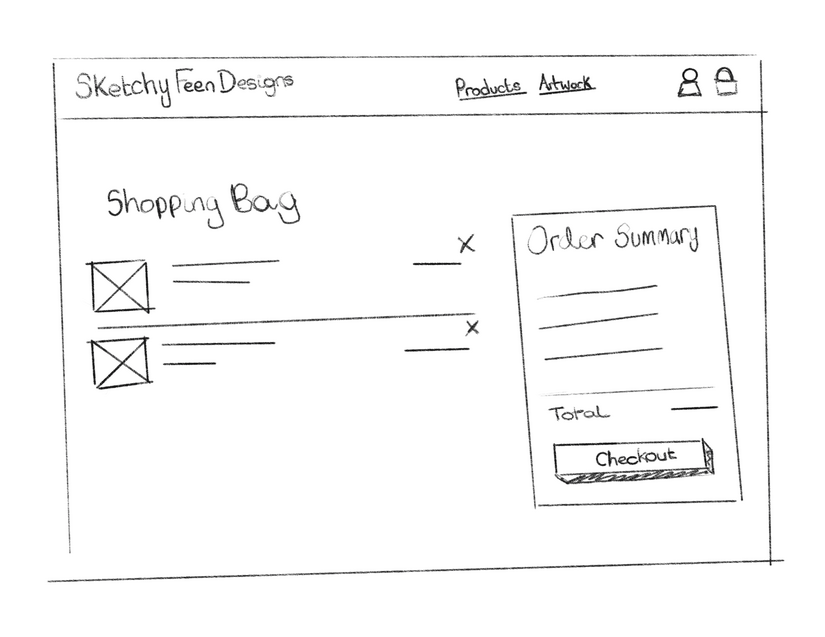 Sketchy Feen Designs
Products Artwork
Shopping Bag
X
X
Order Summary
Total
Checkout